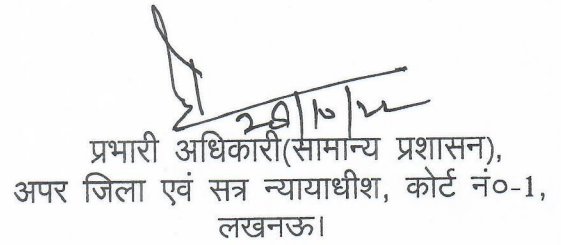 28/10/22
प्रभारी अधिकारी(सामान्य प्रशासन),
अपर जिला एवं सत्र न्यायाधीश, कोर्ट नं०-1,
लखनऊ।